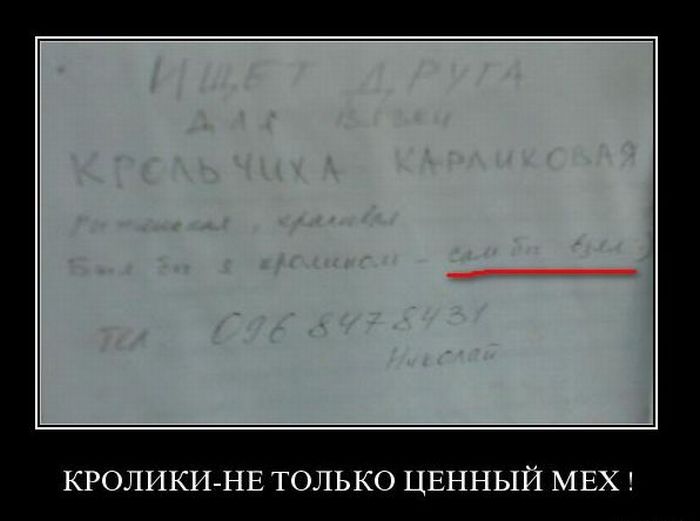 ИЩЕТ ДРУГА
ДЛЯ ВЯЗКИ
КРОЛЬЧИХА КАРЛИКОВАЯ
красивая
Был бы я кроликом - сам бы взял :)
тел 096 8478431
Николай
КРОЛИКИ-НЕ ТОЛЬКО ЦЕННЫЙ МЕХ !